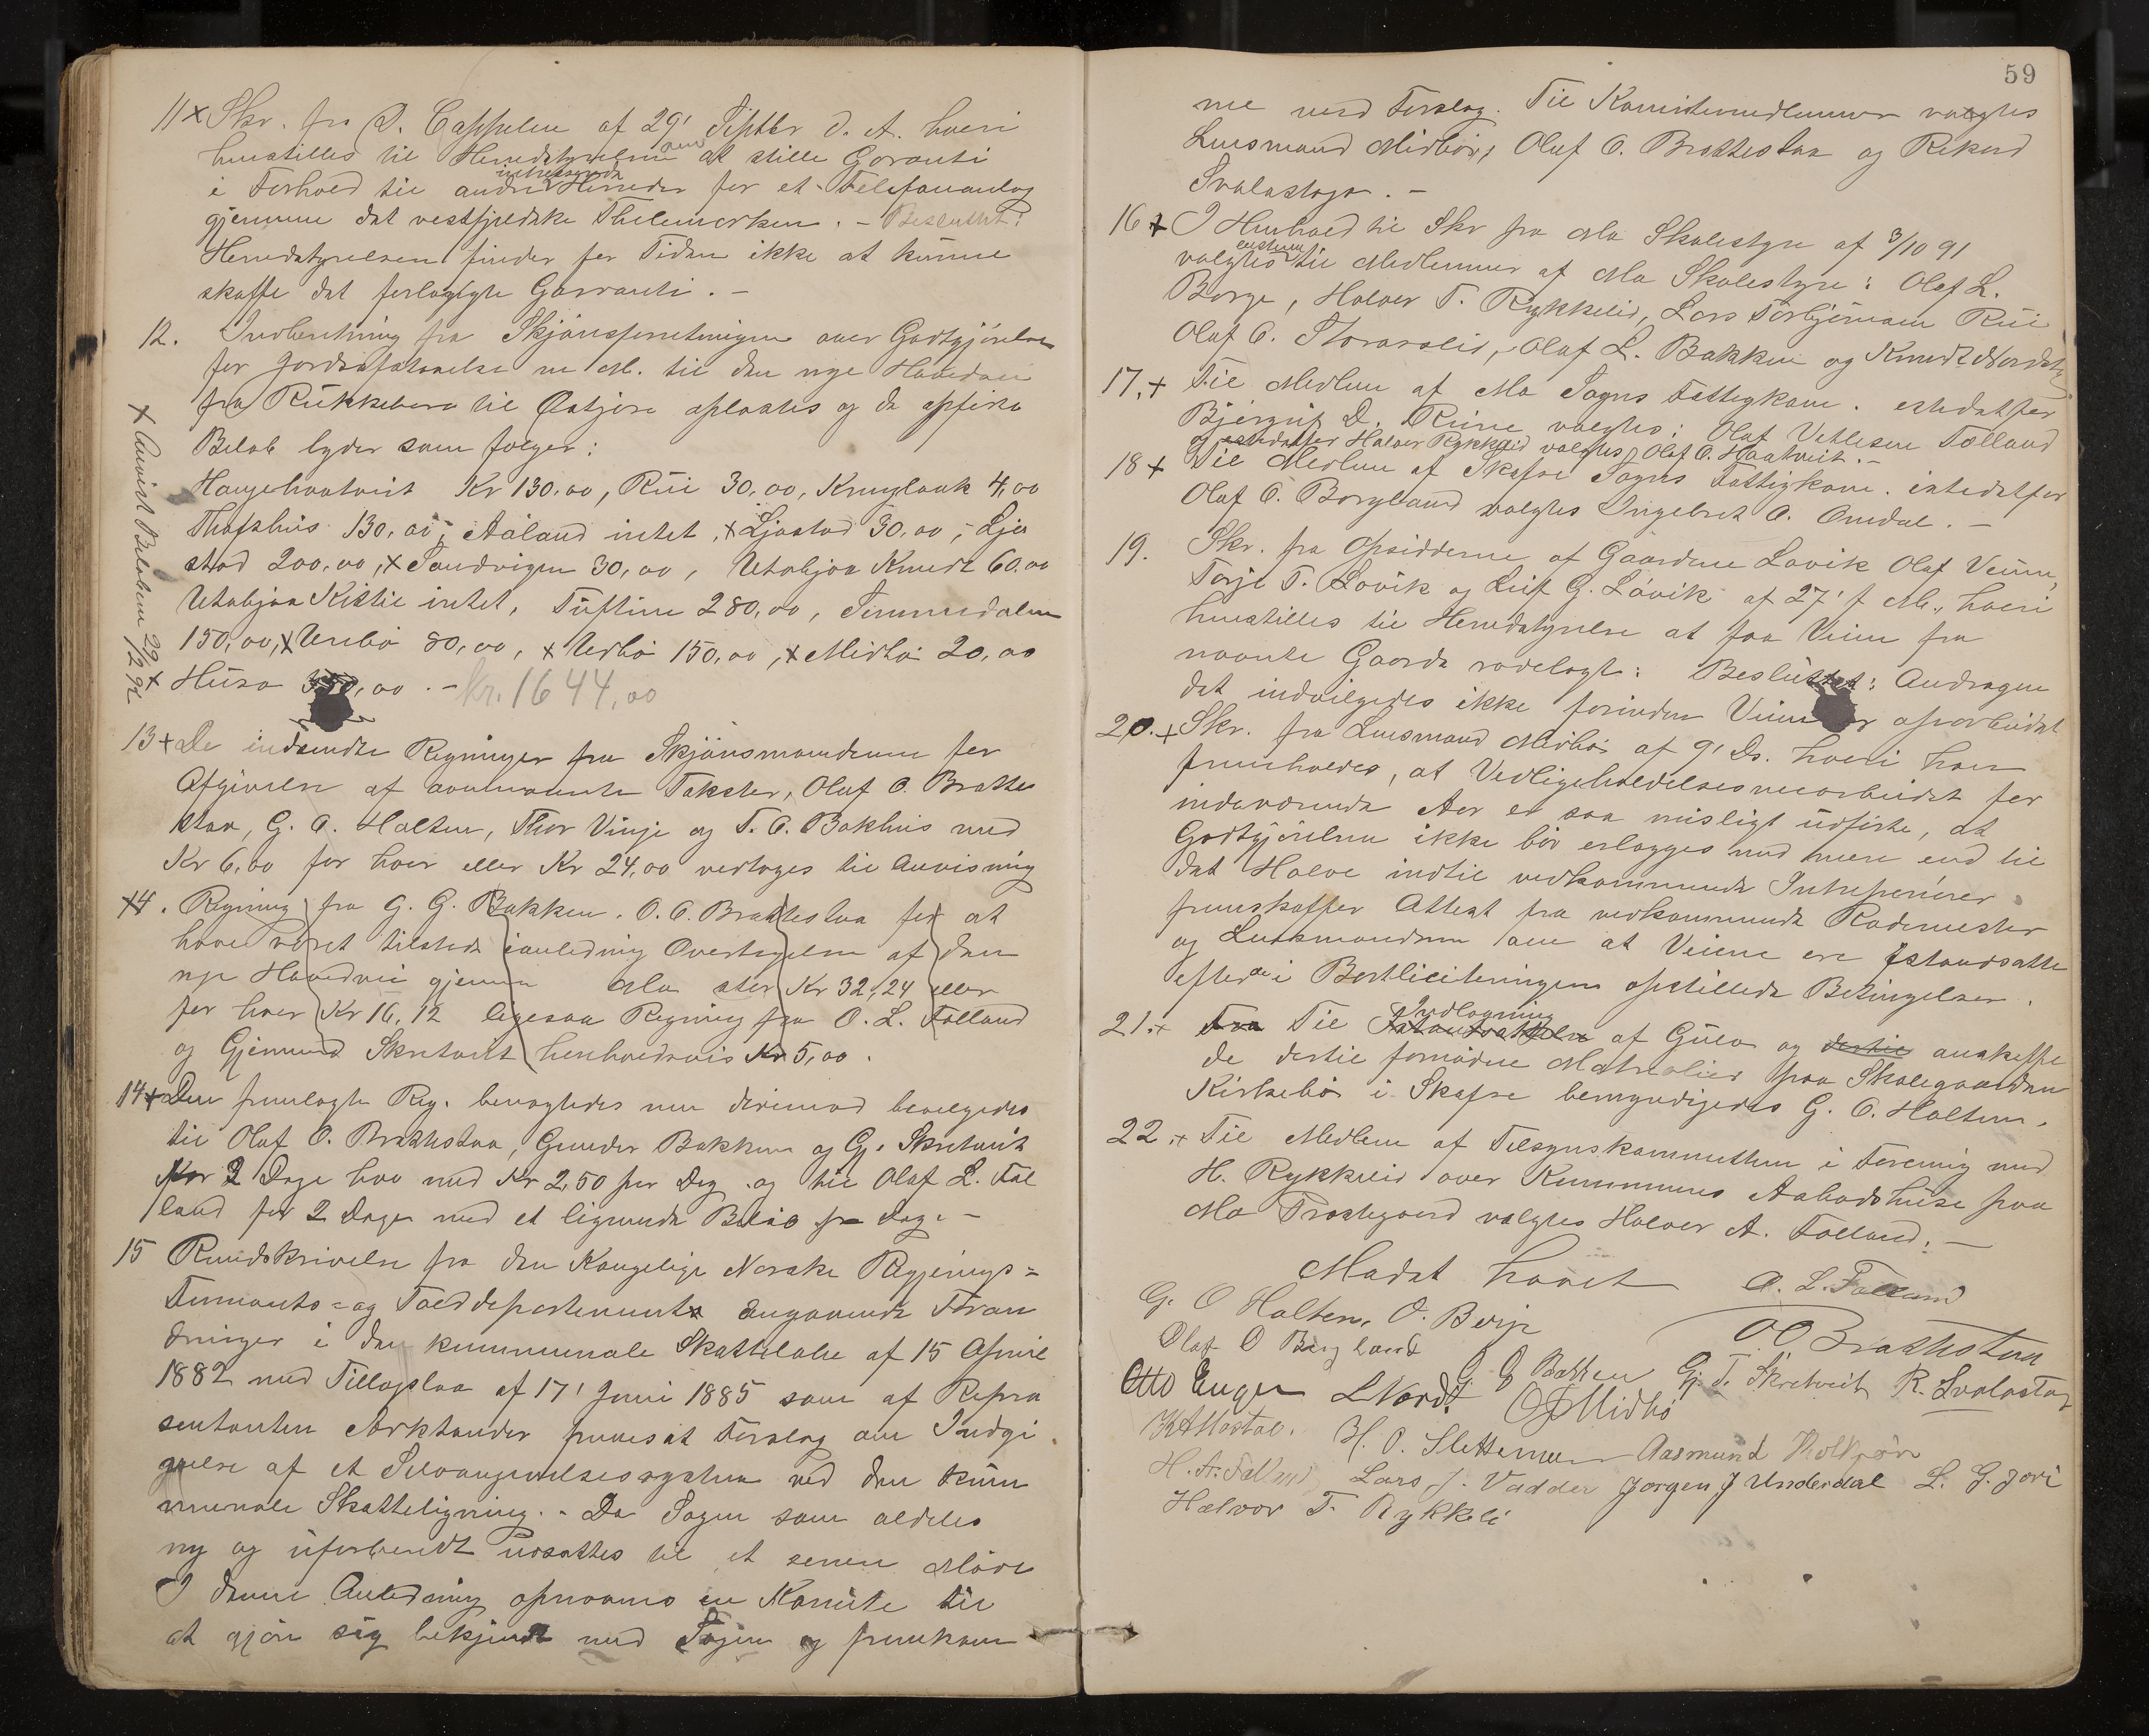 11 x Skr. fra D. Cappelen af 29' Septbr d. A. hvori
henstilles til Herredstyrelsen om at stille Garanti
i Forhold til andre interesserede Herreder for et Telefonanlæg
gjennem det vestfjeldske Thelemarken. – Besluttet:
Herredstyrelsen finder for Tiden ikke at kunne
skaffe det forlangte Garanti. –
12. Indberetning fra Skjønsforretningen over Godtgjørelse
for Jordafstaaelse m. M. til den nye Hovedvei
fra Rukkebero til Østjore oplæstes og de opførte
Beløb lyder som følger:
Haugehaatveit Kr 130,00, Rui 30,00, Krugland 4,00
Thofshus 130,00, Aaland intet, x Ljostad 30,00, Ljo
stad 200,00, x Sandvigen 30,00, Utabjaa Knudt 60.00
Utabjaa Kittil intet, Tuftine 280,00, Timmedalen
150,00, x Uribø 80,00, x Urbø 150,00, x Midbø 20,00
Huso 350,00. – kr. 1644,00
x Anvist Beløbene 29/12 92 x
13 x De indsendte Regninger fra Skjønsmændene for
Afgivelse af ovennævnte Takster, Olaf O. Bratte
staa, G. O. Holten, Thor Vinje og T. O. Bakhus med
Kr 6,00 for hver eller Kr 24,00 vedtoges til Anvisning
14. Regning fra G. G. Bakken. O. O. Brattestaa for at
have været tilstede i anledning Overtagelsen af den
nye Hovedvei gjennem Mo stor Kr 32,24 eller
for hver Kr 16,12 ligesaa Regning fra O. L. Følland
og Gjermund Skretveit henholdsvis Kr 5,00.
14 x Den fremlagte Reg. benegtedes men derimod bevilgedes
til Olaf O. Brattestaa, Gunder Bakken og Gj. Skretveit
for 2 Dage hver med Kr 2,50 per Dag og til Olaf L. Føl
land for 2 Dage med et lignende Beløb pr Dag. –
15 Rundskrivelse fra den Kongelige Norske Regjerings=
Finants= og Tolddepartement angaaende Foran
dringer i den kommunale Skattelov af 15 April
1882 med Tillægslov af 17' Juni 1885 som af Repræ
sentanten Arktander fremsat Forslag om Indgi
velse af et Selvangivelsessystem ved den kom
munale Skatteligning. – Da Sagen som aldeles
ny og uforberedt udsattes til et senere Møde
I denne Anledning opnævnes en Komite til
at gjøre sig bekjendt med Sagen og fremkom
59
me med Forslag. Til Komitemedlemmer valgtes
Lensmand Midbøe, Olaf O. Brattestaa og Rikard
Svalastoga. –
16 x I Henhold til Skr fra Mo Skolestyre af 3/10 91
valgtes til Medlemmer af Mo Skolestyre: Olaf L.
Borge, Halvor T. Rykkelid, Lars Torbjørnsen Rui
Olaf O. Storaaslid, Olaf L. Bakken og Knudt Nordst
17. x Til Medlem af Mo Sogns Fattigkom. istedetfor
Bjørgulf D. Ruine valgtes: Olaf Vetlesen Følland
istedetfor Halvor Rykkelid valgtes Olaf O. Haatveit. –
18 x Til Medlem af Skafse Sogns Fattigkom. istedetfor
Olaf O. Borgland valgtes Ingebret A. Omdal. –
19. Skr. fra Opsidderne af Gaardene Lavik Olaf Veum,
Torje T. Lavik og Leif G. Lavik af 27' f. M., hvori
henstilles til Herredstyrelse at faa Veien fra
nævnte Gaarde rodelagt: Besluttet: Andragen
det indvilgedes ikke forinden Veien er oparbeidet
20. x Skr. fra Lensmand Midbø af 9' ds. hvori han
fremholdes, at Vedligeholdelsesvearbeidet for
indeværende Aar er saa misligt udført, at
Godtgjørelsen ikke bør erlægges med mere end til
det Halve indtil vedkommende Entreprenører
fremskaffer Attest fra vedkommende Rodemester
og Lensmanden om at Veiene ere istandsatte
efter de i Bortliciteringen opstillede Betingelser.
21. x Til Indlægning af Gulv og anskaffe
de dertil fornødne Materialier paa Skolegaarden
Kirkebø i Skafse bemyndigedes G. O. Holten.
22. x Til Medlem af Tilsynskommitteen i Forening med
H. Rykkelid over Kommunens Aabodshuse paa
Mo Præstegaard valgtes Halvor A. Følland. –
Mødet hævet
O. L. Følland
G. O Holten, O. Borge
O O Brattestaa
Olaf O Borgland
G G Bakken Gj. T. Skretveit R. Svalastog
Otto Eugen L Nordt O J Midbø
K A Mostøl. H. O. Slettemeen Aasmund Holtjøn
H. A. Følland Lars J. Vadder Jorgen J Underdal L. G. Jori
Halvor T. Rykkeli